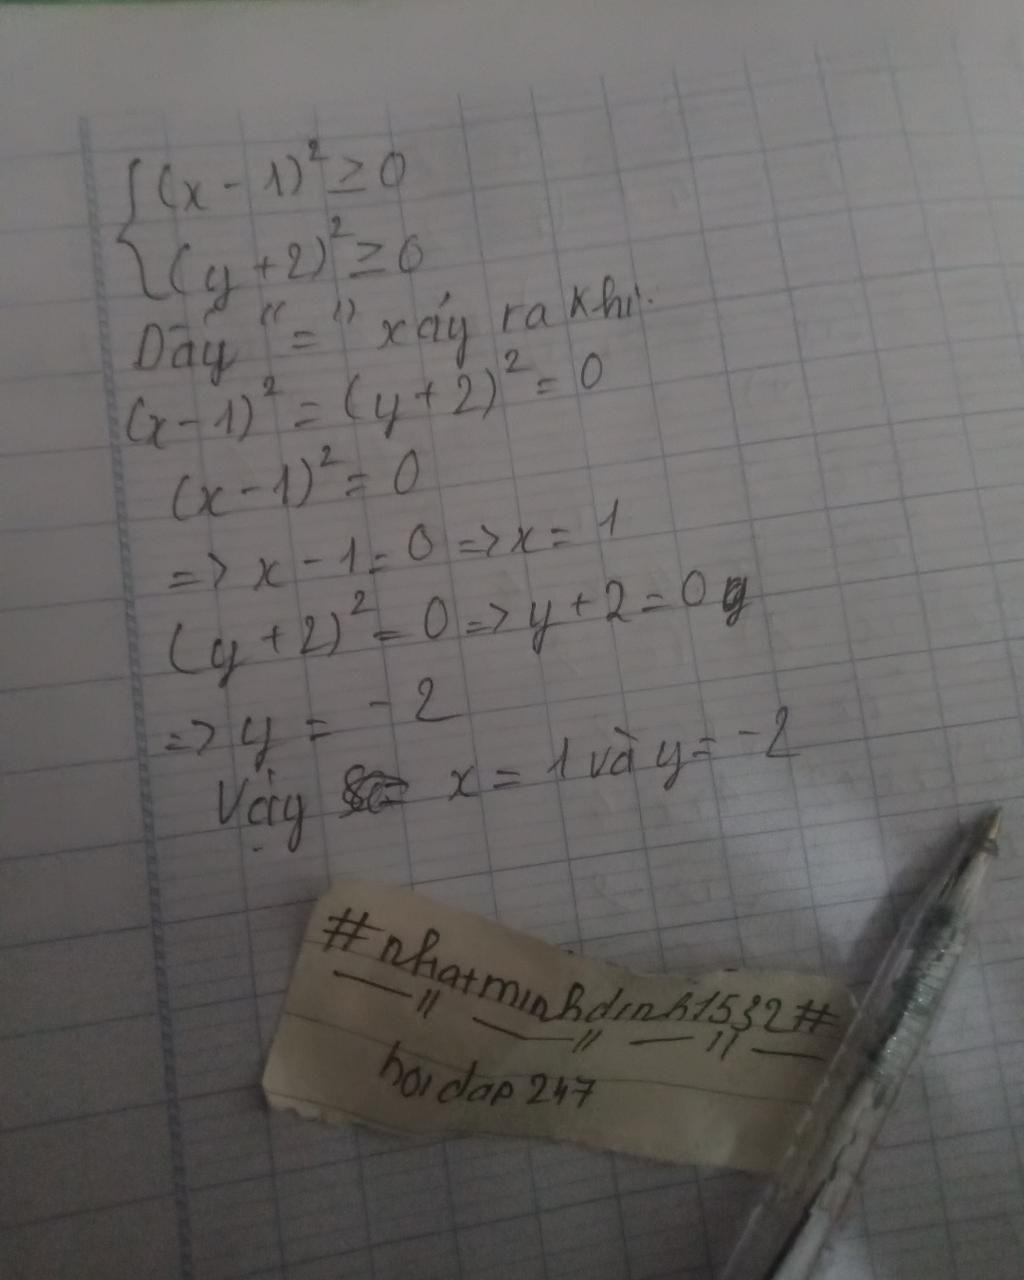 {(x - 1)² ≥ 0
{(y + 2)² ≥ 0
Dấy "=" xảy ra khi.
(x - 1)² = (y + 2)² = 0
(x - 1)² = 0
=> x - 1 = 0 => x = 1
(y + 2)² = 0 => y + 2 = 0
=> y = - 2
Vậy x = 1 và y = -2
#nhatminhdinh1532#
hoidap247